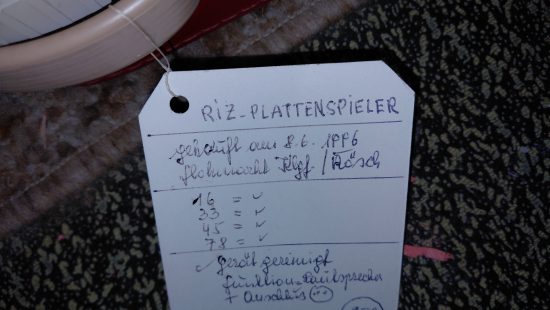 RIZ-PLATTENSPIELER
gekauft am 8.6.1996
Flohmarkt Klgf /
16 = ✓
33 = ✓
45 = ✓
78 = ✓
✓ Gerät gereinigt
Funktion - Lautsprecher
+ Anschluss